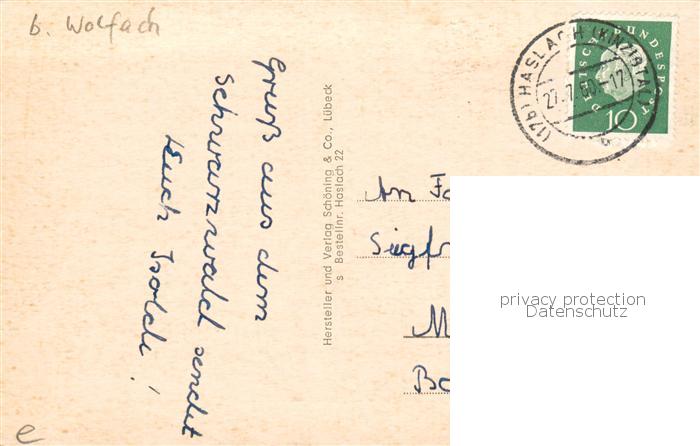 b. Wolfach
Gruß aus dem
Schwarzwald sendet
Euch Isolde!
Hersteller und Verlag Schöning & Co., Lübeck
s Bestellnr. Haslach 22
(17b) HASLACH (KINZIGTAL)
27.7.60.-17
a
DEUTSCHE BUNDESPOST
10
An Fa
Siegfr
M
Ba
privacy protection
Datenschutz
e